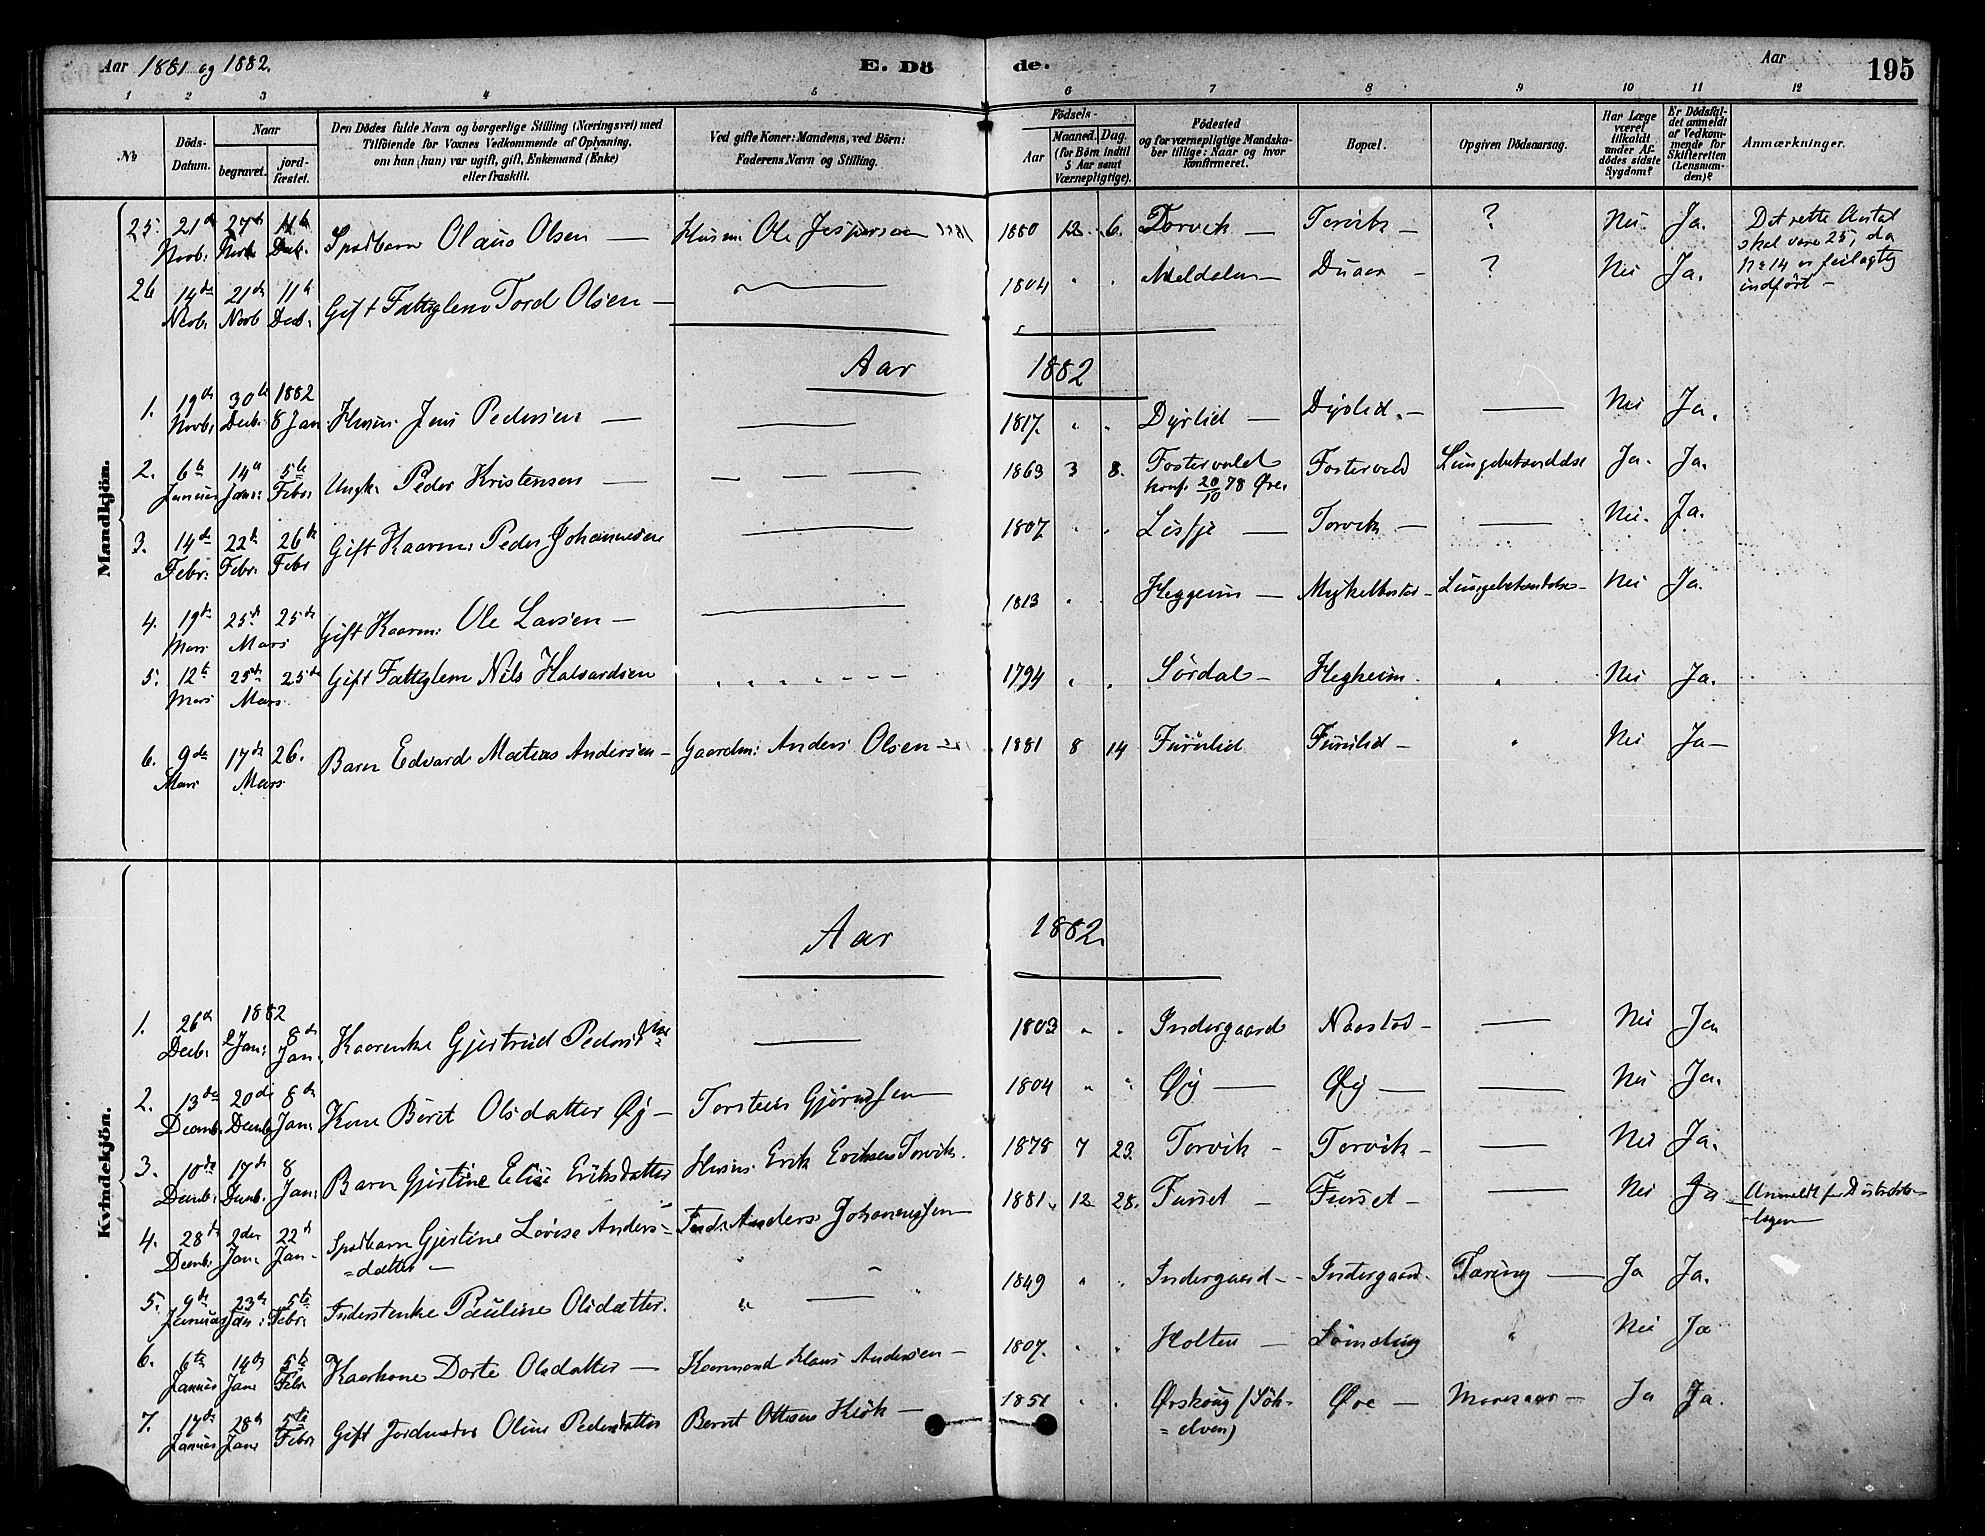 Aar 1881 og 1882.
E. Dö
de.
Aar
195
1 2 3 4 5 6 7 8 9 10 11 12
No
Döds-Datum.
Naar
begravet.
jord-fæstet.
Den Dödes fulde Navn og borgerlige Stilling (Næringsvei) med
Tilföiende for Voxnes Vedkommende af Oplysning,
om han (hun) var ugift, gift, Enkemand (Enke)
eller fraskilt.
Ved gifte Koner: Mandens, ved Börn:
Faderens Navn og Stilling.
Födsels-
Aar
Maaned. Dag.
(for Börn indtil
5 Aar samt
Værnepligtige).
Födested
og for værnepligtige Mandska-
ber tillige: Naar og hvor
konfirmeret.
Bopæl.
Opgiven Dödsaarsag.
Har Læge
været
tilkaldt
under Af-
dödes sidste
Sygdom?
Er Dödsfal-
det anmeldt
af Vedkom-
mende for
Skifteretten
(Lensman-
den)?
Anmærkninger.
Mandkjön.
25. 21de Novb. 27de Novb. 11te Decb. Spædbarn Olaus Olsen — Husm. Ole Jespersen 1881 1880 12 6. Torvik — Torvik — ? Nei. Ja. Det rette Antal
skal være 25, da
No 14 er feilagtig
indfört —
26 14de Novb. 21de Novb 11te Decb. Gift Fattiglem Tord Olsen — 1804 " " Meldalen — Duaas — ? Nei Ja.
Aar 1882
1. 19de Novb. 30te Decb. 1882 8 Jan Husm. Jens Pedersen — 1817. " " Dyrlid — Dyrlid. — Nei Ja.
2. 6te Januar 14de Jan: 5te Febr Ungk. Peder Kristensen — 1863 3 8. Fostervold
konf. 20/10 78 Øre. Fostervold Lungebetændelse Ja. Ja.
3. 14de Febr: 22de Febr: 26de Febr Gift Kaarm: Peder Johannesen 1807 " " Lisfje — Torvik — Nei. Ja.
4. 19de Mars 25de Mars 25de Gift Kaarm: Ole Larsen — 1813 " " Heggeim — Myklebostad — Lungebetændelse — Nei Ja.
5. 12te Mars 25de Mars 25de Gift Fattiglem Nils Halvardsen 1794 " " Sördal — Hegheim. " Nei Ja.
6. 9de Mars 17de Mars 26. Barn Edvard Matias Andersen — Gaardm: Anders Olsen — 1881 8 14 Furulid Furulid — " Nei Ja —
Kvindekjön.
Aar 1882.
1. 26de Decb. 1882 2 Jan: 8de Jan. Kaarenke Gjertrud Pedersdtter 1803 " " Indergaard Naastad — Nei Ja
2. 13de Decmb. 20de Decmb 8de Jan: Kone Berit Olsdatter Øy — Torsten Gjörussen 1804 " " Øy — Øy — Nei Ja.
3. 10de Decmb. 17de Decmb. 8 Jan: Barn Gjertine Elise Eriksdatter Husm. Erik Eriksen Torvik. 1878 7 23. Torvik — Torvik — Nei Ja.
4. 28de Decmb. 2den Jan. 22de Jan — Spædbarn Gjertine Lovise Anders-
=datter — Anders Johannessen 1881. 12 28. Furset — Furset — Nei Ja Anmeldt
5. 9de Januar 23de Jan: 5te Febr. Inderstenke Pauline Olsdatter. " 1849 " " Indergaard — Indergaard. Tæring — Ja Ja.
6. 6te Januar 14de Jan 5te Febr Kaarkone Dorte Olsdatter — Kaarmand Klaus Andersen — 1807. " " Holten — " Nei Ja
7. 17de Januar 28de Jan 5te Febr Gift Jordmoder Oline Pedersdatter Bernt Ottesen Klök — 1851 " " Ørskoug (Söh-
=elven) Øre — Ja Ja.